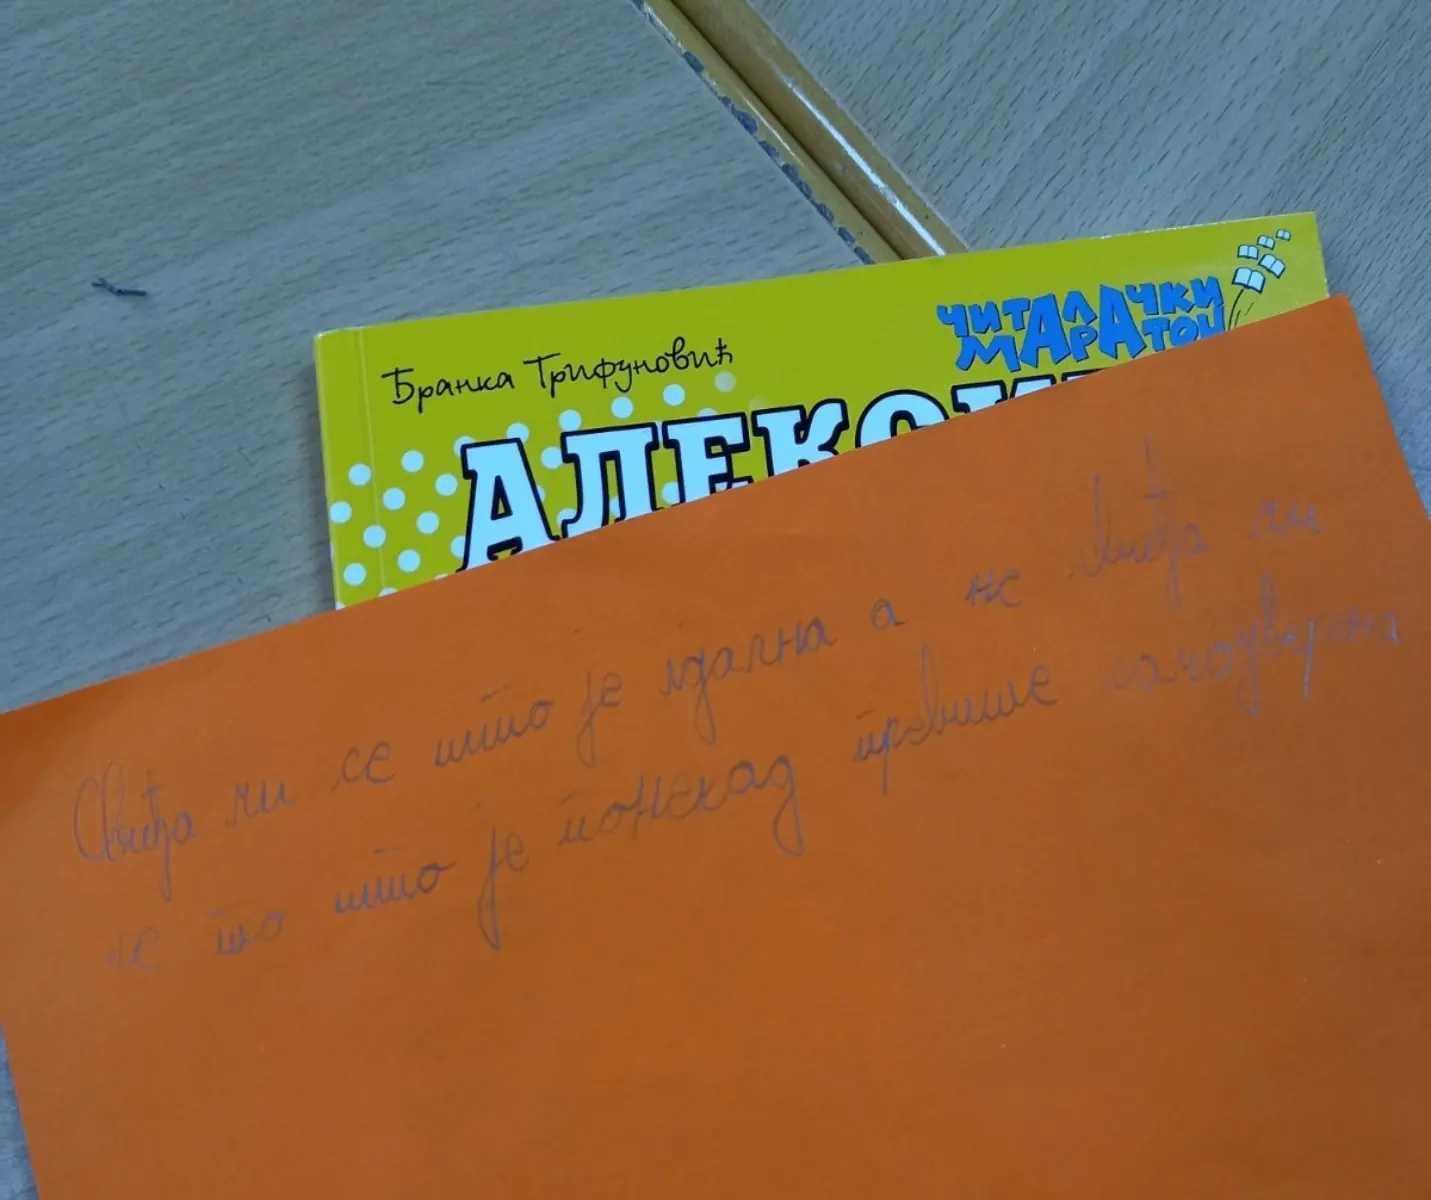 Бранка Трифуновић
ЧИТАЛАЧКИ
МАРАТОН
Свиђа ми се што је идална а не свиђа ми
се то што је понекад превише самоуверена